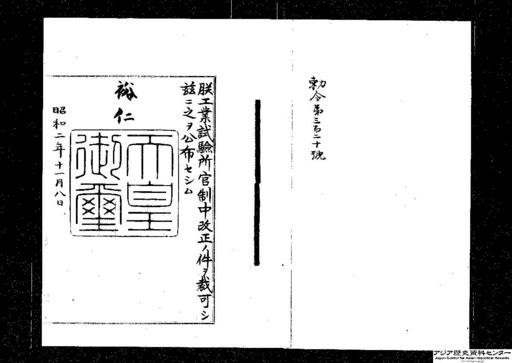 勅令第三百二十號
朕工業試驗所官制中改正ノ件ヲ裁可シ
茲ニ之ヲ公布セシム
裕仁
天皇
御璽
昭和二年十一月八日
アジア歴史資料センター
Japan Center for Asian Historical Records